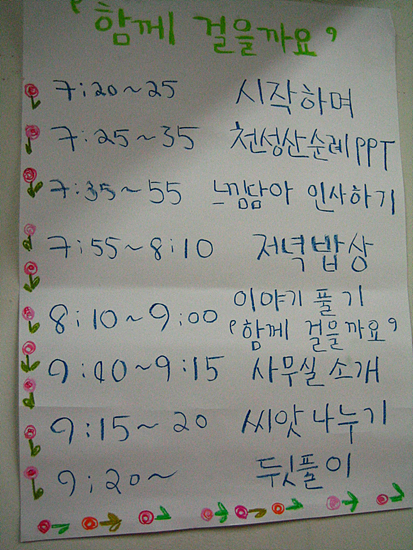 “함께 걸을까요”
7:20~25 시작하며
7:25~35 천성산순례 PPT
7:35~55 느낌담아 인사하기
7:55~8:10 저녁밥상
8:10~9:00 이야기 풀기
“함께 걸을까요”
9:00~9:15 사무실 소개
9:15~20 씨앗 나누기
9:20~ 뒷풀이